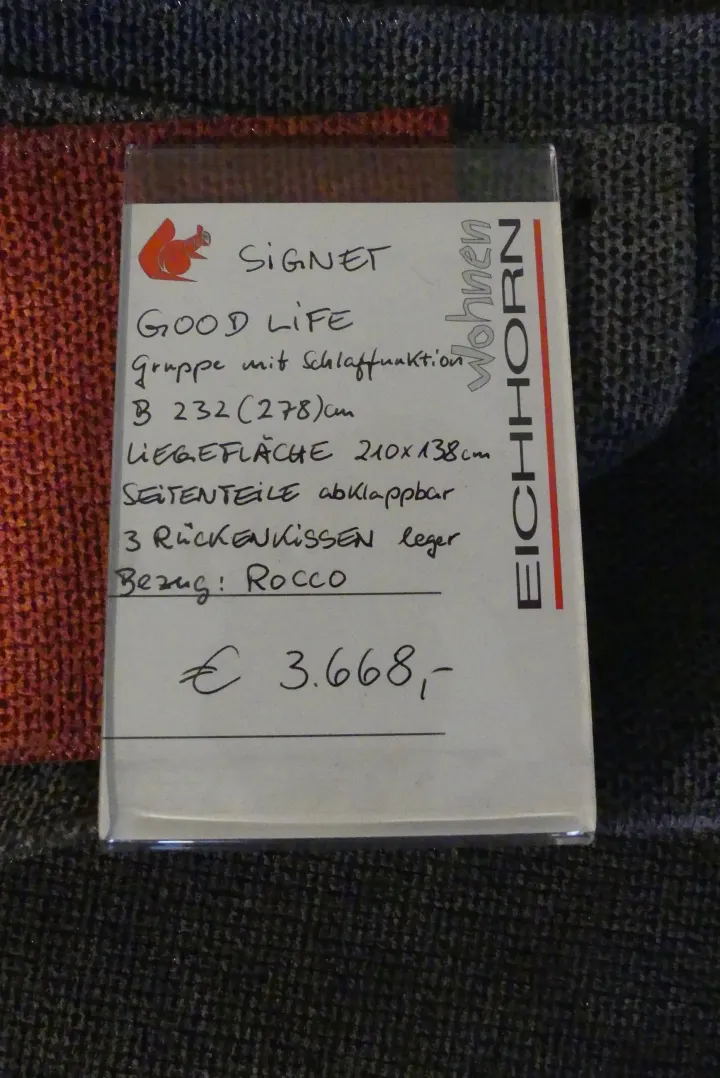 SiGNET
GOOD LiFE
Gruppe mit Schlaffunktion
B 232 (278) cm
LiEGEFLÄCHE 210x138 cm
SEiTENTEiLE abklappbar
3 RÜCKENKiSSEN leger
Bezug: ROCCO
€ 3.668,-
Wohnen
EICHHORN